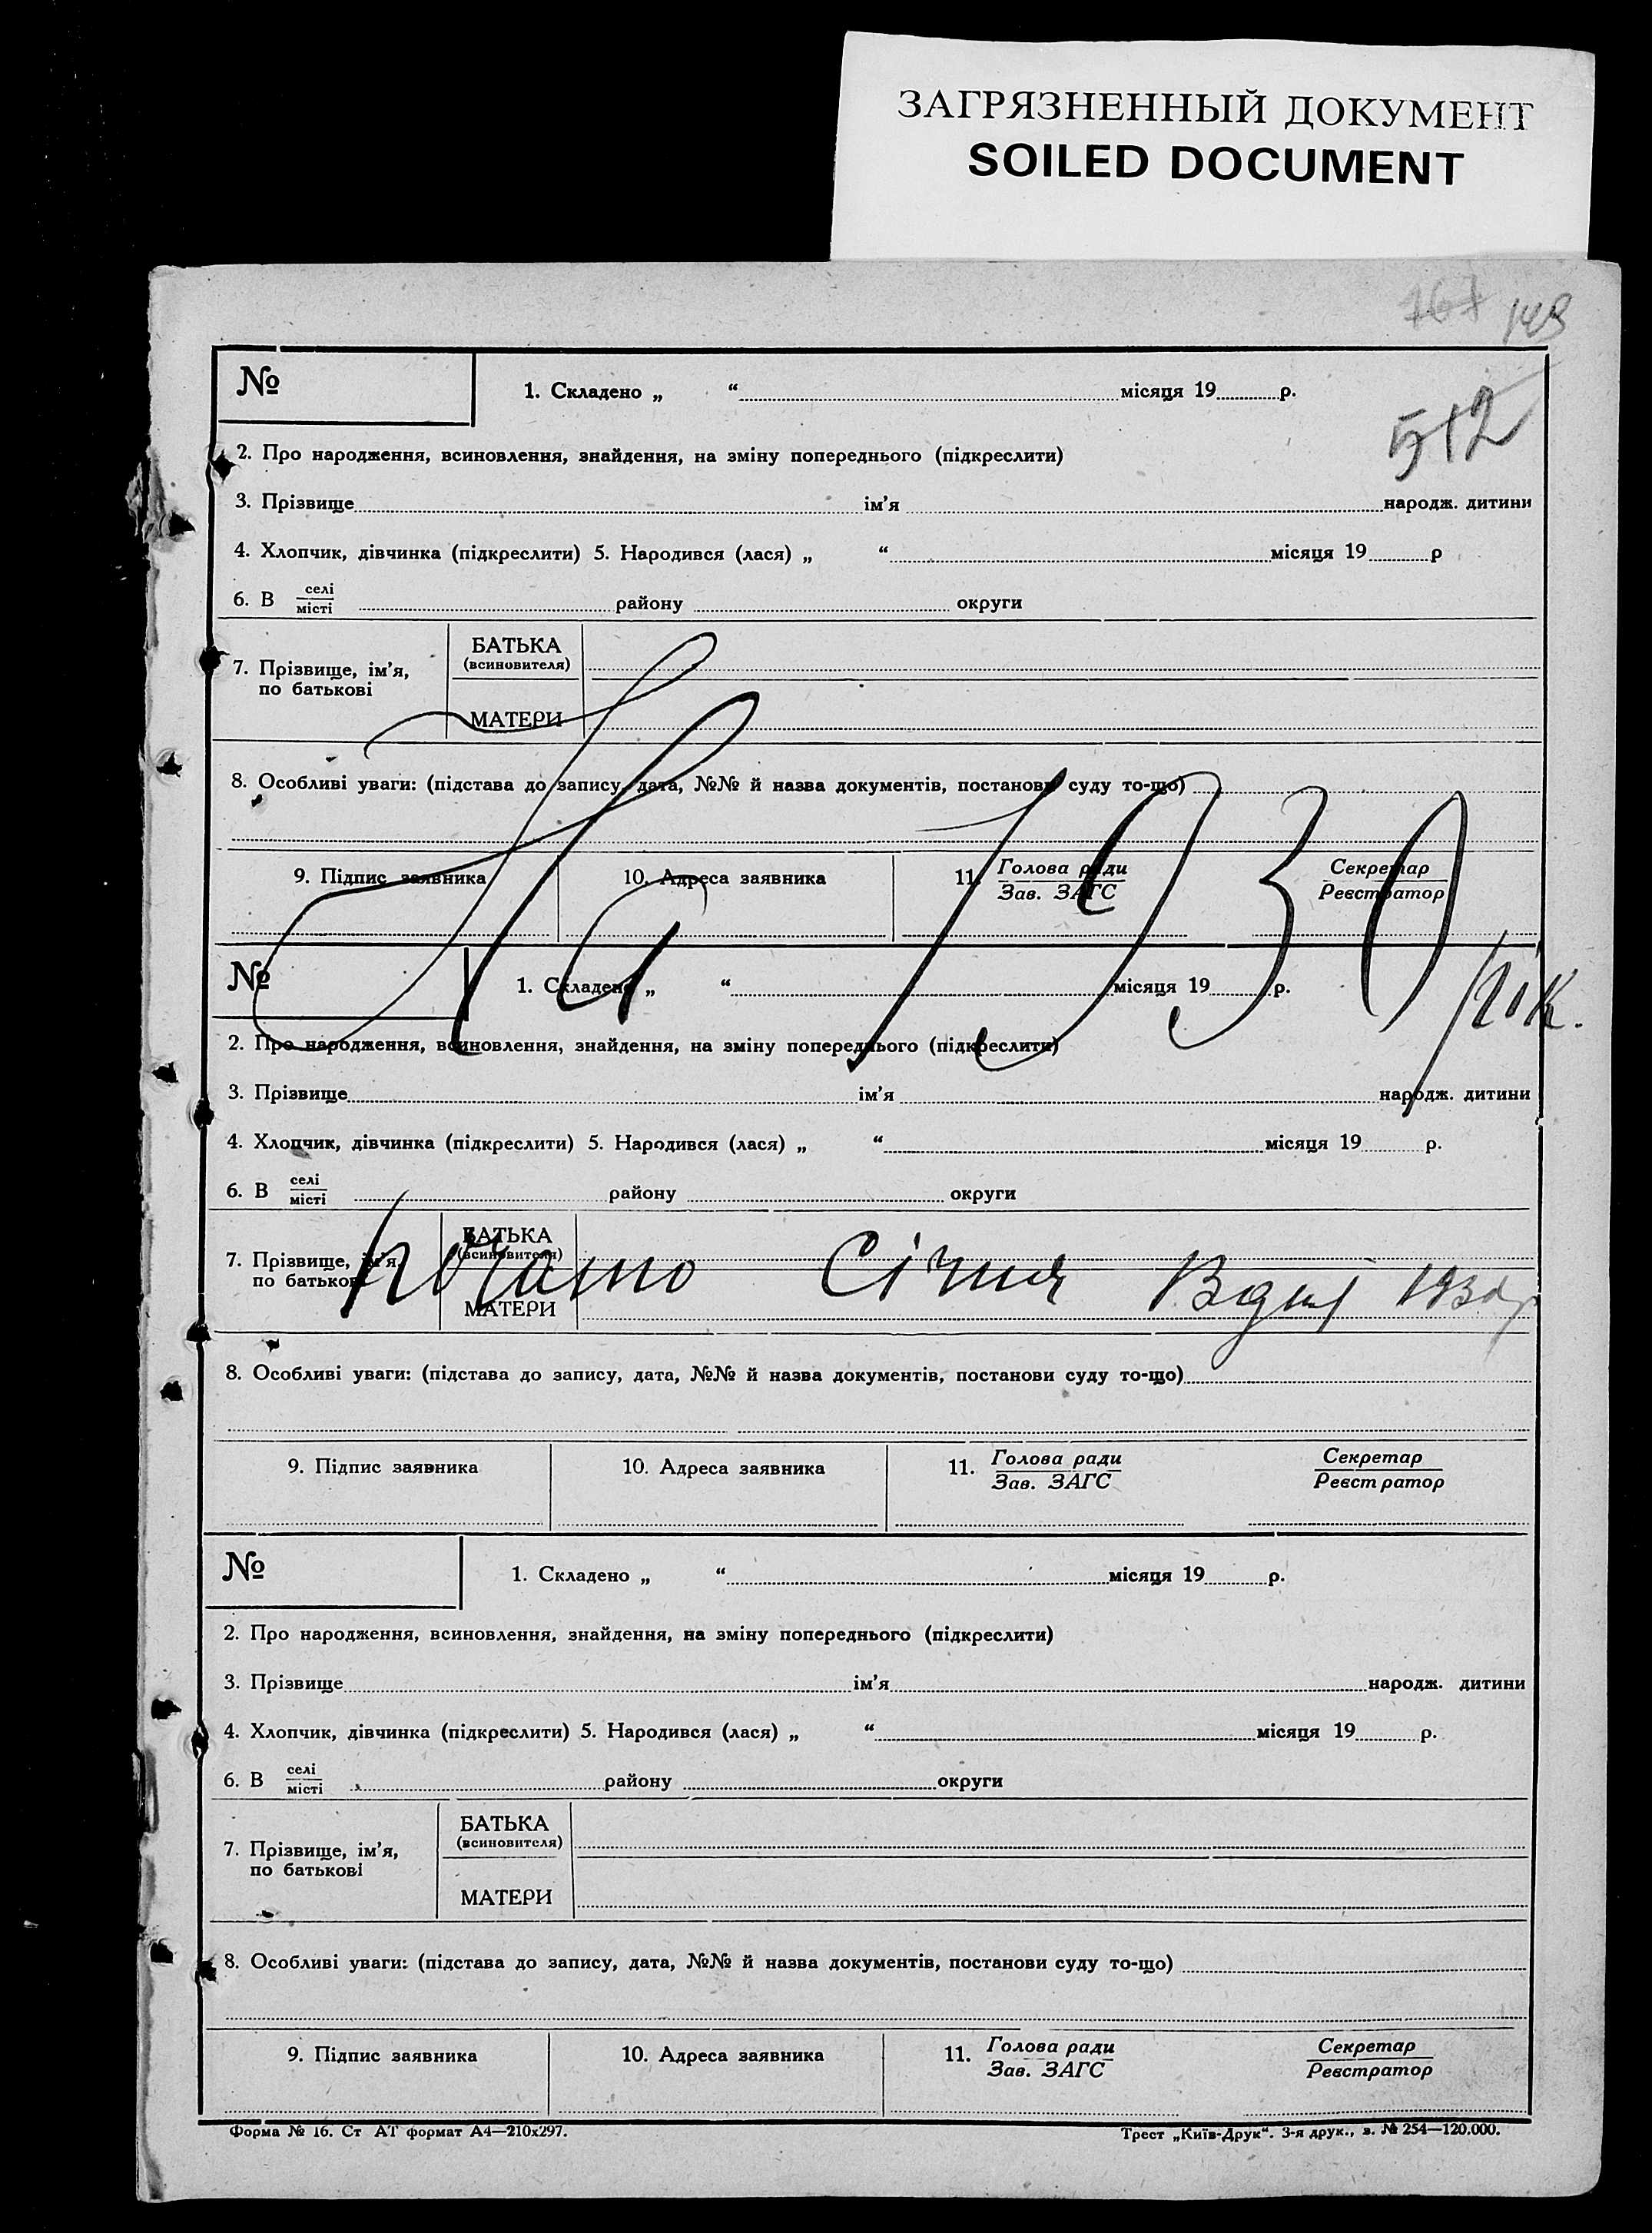 ЗАГРЯЗНЕННЫЙ ДОКУМЕНТ
SOILED DOCUMENT
167 149
№ 1. Складено „ “ місяця 19 р.
512
2. Про народження, всиновлення, знайдення, на зміну попереднього (підкреслити)
3. Прізвище ім’я народж. дитини
4. Хлопчик, дівчинка (підкреслити) 5. Народився (лася) „ “ місяця 19 р
6. В селі/місті району округи
7. Прізвище, ім’я, по батькові
БАТЬКА (всиновителя)
МАТЕРИ
8. Особливі уваги: (підстава до запису, дата, №№ й назва документів, постанови суду то-що)
9. Підпис заявника 10. Адреса заявника 11. Голова ради/Зав. ЗАГС Секретар/Реєстратор
На 1930 рік.
№ 1. Складено „ “ місяця 19 р.
2. Про народження, всиновлення, знайдення, на зміну попереднього (підкреслити)
3. Прізвище ім’я народж. дитини
4. Хлопчик, дівчинка (підкреслити) 5. Народився (лася) „ “ місяця 19 р.
6. В селі/місті району округи
7. Прізвище, ім’я, по батькові
БАТЬКА (всиновителя)
МАТЕРИ
почато Січня 1930р
8. Особливі уваги: (підстава до запису, дата, №№ й назва документів, постанови суду то-що)
9. Підпис заявника 10. Адреса заявника 11. Голова ради/Зав. ЗАГС Секретар/Реєстратор
№ 1. Складено „ “ місяця 19 р.
2. Про народження, всиновлення, знайдення, на зміну попереднього (підкреслити)
3. Прізвище ім’я народж. дитини
4. Хлопчик, дівчинка (підкреслити) 5. Народився (лася) „ “ місяця 19 р.
6. В селі/місті району округи
7. Прізвище, ім’я, по батькові
БАТЬКА (всиновителя)
МАТЕРИ
8. Особливі уваги: (підстава до запису, дата, №№ й назва документів, постанови суду то-що)
9. Підпис заявника 10. Адреса заявника 11. Голова ради/Зав. ЗАГС Секретар/Реєстратор
Форма № 16. Ст АТ формат А4—210х297. Трест „Київ-Друк“. 3-я друк., з. № 254—120.000.